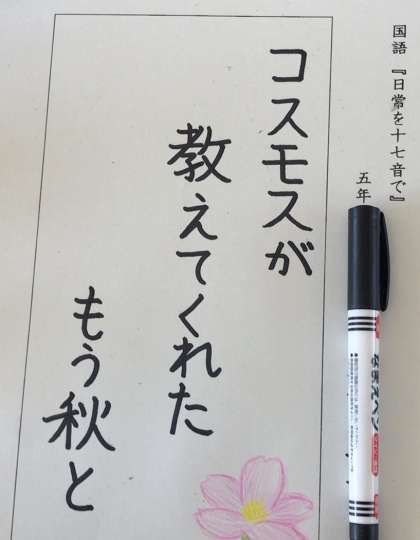 国語『日常を十七音で』
五年
コスモスが
教えてくれた
もう秋と
なまえペン